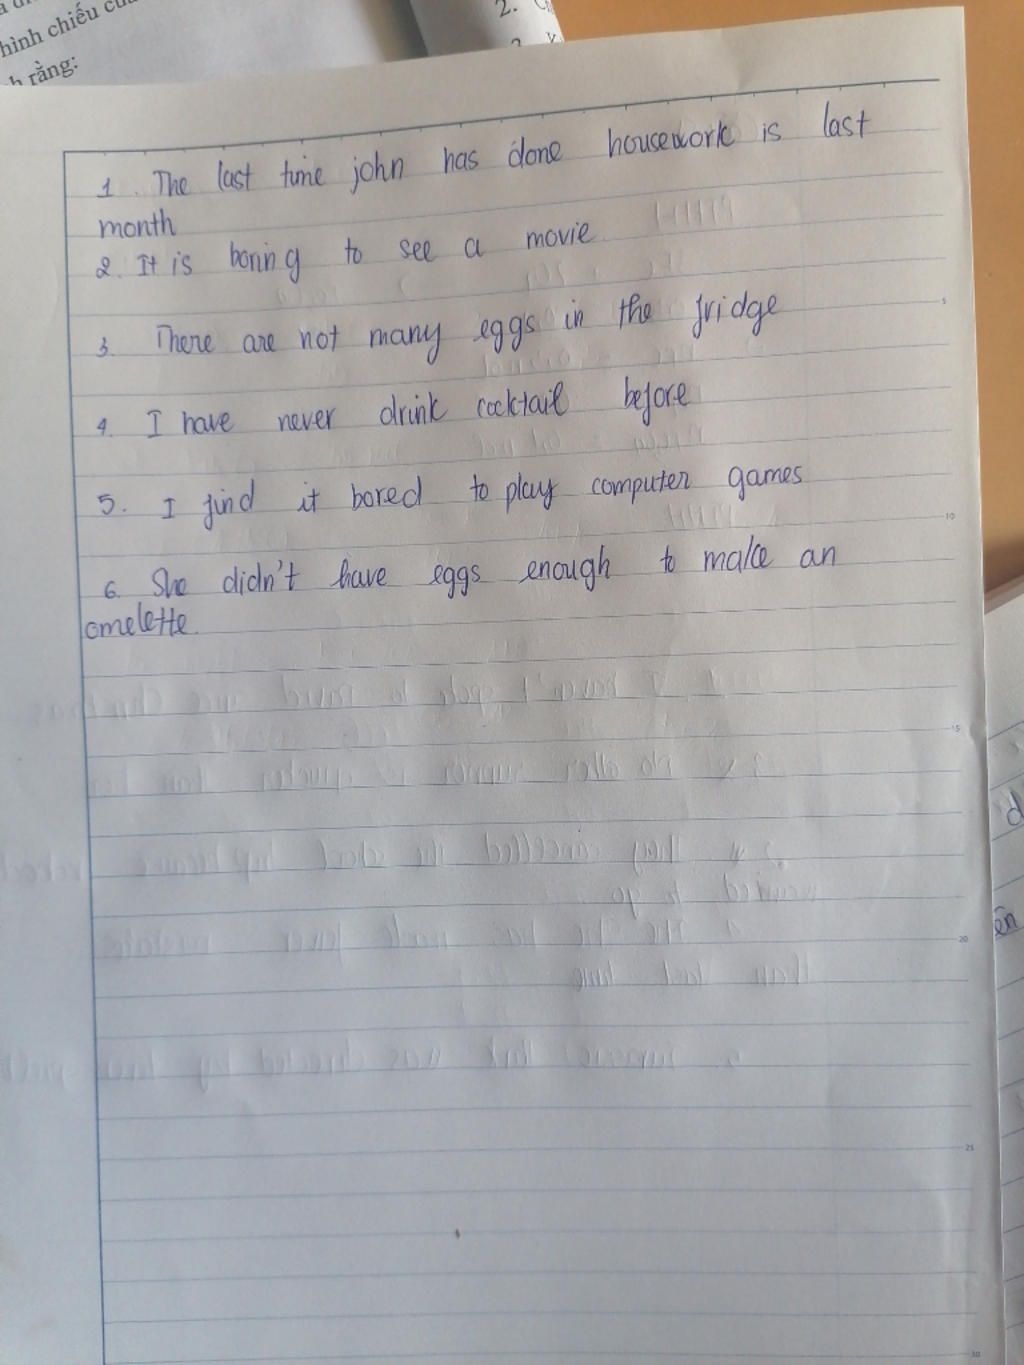 hình chiếu
rằng:
2.
1. The last time john has done housework is last
month
2. It is boring to see a movie
3. There are not many eggs in the fridge
4. I have never drink cocktail before
5. I find it bored to play computer games
6. She didn't have eggs enough to make an
omelette.
5
10
15
20
25
30
d
ên